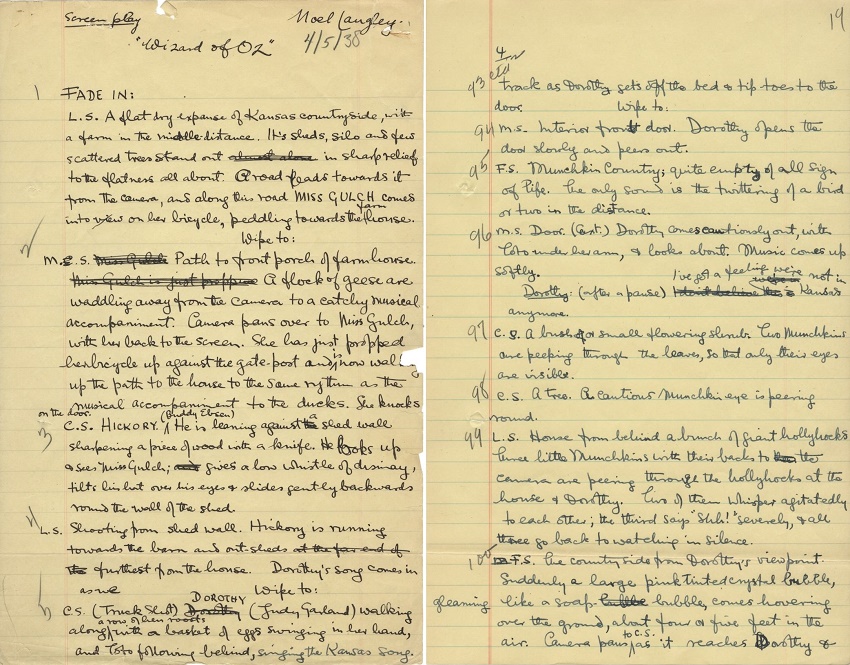 Screen play
Noel Langley.
"Wizard of Oz"
4/5/38
1 FADE IN:
L.S. A flat dry expanse of Kansas countryside, with
a farm in the middle-distance. It's sheds, silo and few
scattered trees stand out almost alone in sharp relief
to the flatness all about. A road leads towards it
from the camera, and along this road MISS GULCH comes
into view on her bicycle, peddling towards the farm house.
Wipe to:
2 M.S. Miss Gulch Path to front porch of farmhouse.
Miss Gulch is just propping A flock of geese are
waddling away from the camera to a catchy musical
accompaniment. Camera pans over to Miss Gulch,
with her back to the screen. She has just propped
her bicycle up against the gate-post and is now
up the path to the house to the same rythm as the
musical accompaniment to the ducks. She knocks
on the door.
3 C.S. HICKORY. (Buddy Ebsen) He is leaning against the a shed wall
sharpening a piece of wood with a knife. He looks up
& sees Miss Gulch; and gives a low whistle of dismay,
tilts his hat over his eyes & slides gently backwards
round the wall of the shed
4 L.S. Shooting from shed wall. Hickory is running
towards the barn and out-sheds at the far end of
the furthest from the house. Dorothy's song comes in
as we
Wipe to:
5 C.S. (Truck Shot) Dorothy DOROTHY (Judy Garland) walking
along a row of hen roosts with a basket of eggs swinging in her hand,
and Toto following behind, singing the Kansas Song.
19
93 track as Dorothy gets off the bed & tip toes to the
door.
Wipe to:
94 M.S. Interior front door. Dorothy opens the
door slowly and peers out.
95 F.S. Munchkin Country; quite empty of all sign
of life. The only sound is the twittering of a bird
or two in the distance.
96 M.S. Door. (Cont.) Dorothy comes cautiously out, with
Toto under her arm, & looks about. Music comes up
softly.
Dorothy: (after a pause) I don't believe this is I've got a feeling we're not in Kansas
anymore.
97 C.S. A bush of small flowering shrub. Two Munchkins
are peeping through the leaves, so that only their eyes
are visible.
98 C.S. A tree. A cautious Munchkin eye is peering
round.
99 L.S. House from behind a bunch of giant hollyhocks
three little Munchkins with their backs to the
camera are peering through the hollyhocks at the
house & Dorothy. Two of them whisper agitatedly
to each other; the third says "Shh!" severely, & all
three go back to watching in silence.
100 F.S. The countryside from Dorothy's viewpoint.
Suddenly a large pink tinted crystal bubble,
gleaming like a soap bubble bubble, comes hovering
over the ground, about four or five feet in the
air. Camera pans to C.S. as it reaches Dorothy &